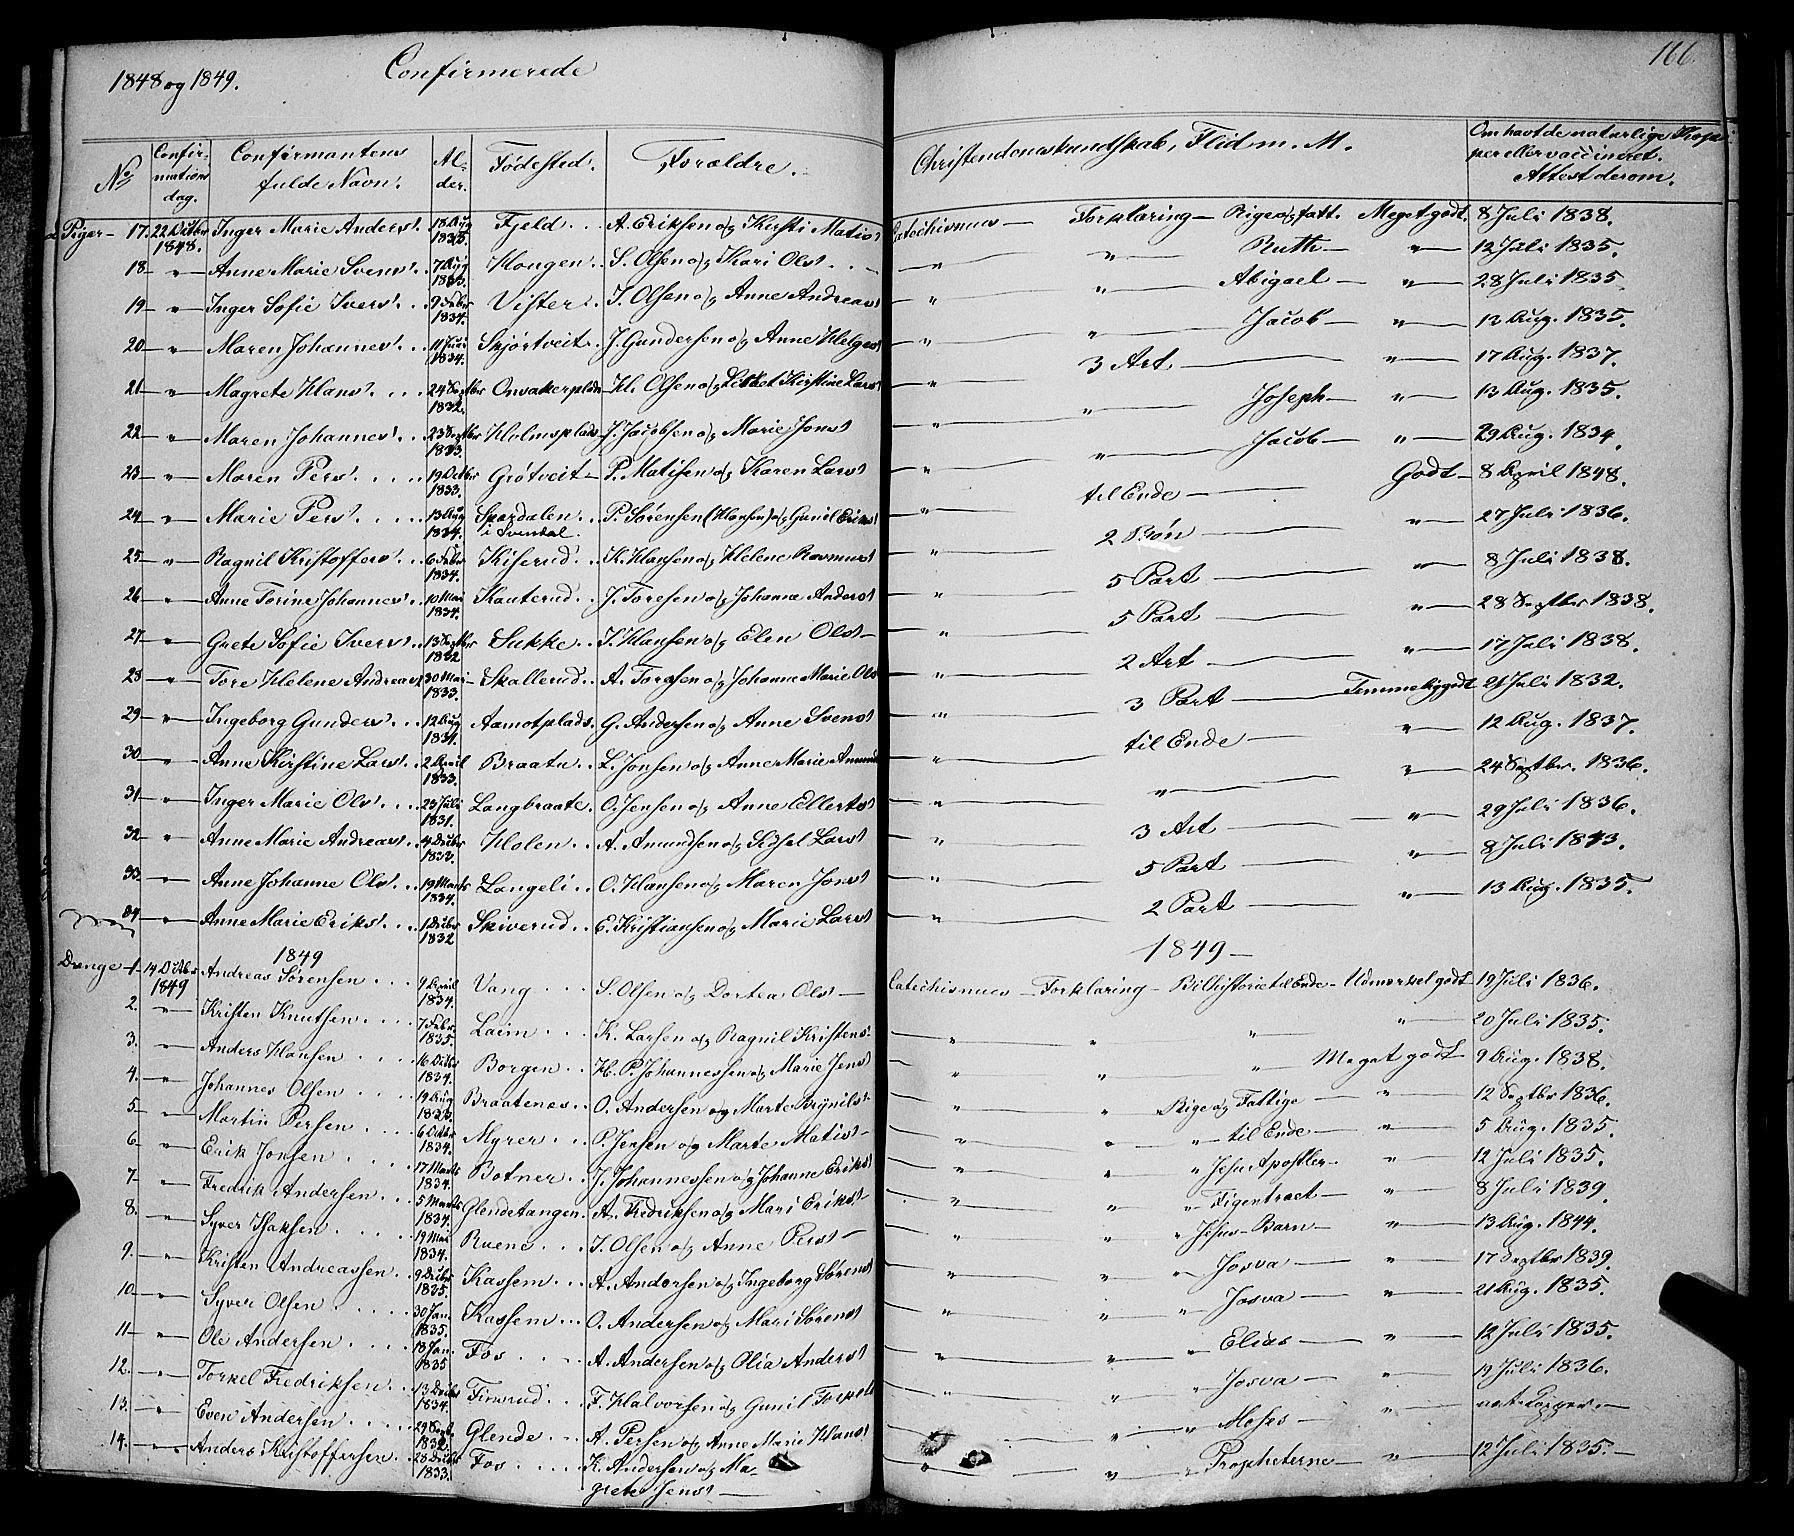 166.
1848 og 1849. Confirmerede
No Confir- mations dag. Confirmantens fulde Navn. Al- der. Fødested. Forældre. Christendomskundskab, Flid m. M. Om havt de naturlige Kop- per eller vaccineret. Attest derom.
Piger – 17. 22 Octbr 1848. Inger Marie Anders. 18 Aug 1833. Fjeld A. Eriksen og Kirsti Matis Catechismus – Forklaring – Rige og fatt. Meget godt. 8 Juli 1838.
18 – " – Anne Marie Svens. 7 Aug 1833. Haugen S. Olsen og Kari Ols – " – " – Ruth – " – 12 Juli 1835.
19 – " – Inger Sofie Ivers. 9 Febr 1834. Vister I. Olsen og Anne Andreas – " – " – Abigael – " – 28 Juli 1835.
20 – " – Maren Johannes. 11 Juni 1834. Skjørtveit J. Gundersen og Anne Helges – " – " – Jacob – " – 13 Aug. 1835.
21 – " – Magrete Hans. 24 Septbr 1832. Onsakerplads H. Olsen og Lisbet Kirstine Lars – " – 3 Art – " – 17 Aug. 1837.
22 – " – Maren Johannes. 23 Septbr 1833. Holmsplads J. Jacobsen og Marie Jons – " – " – Joseph – " – 13 Aug. 1835.
23 – " – Maren Pers. 19 Octbr 1833. Grøtveit P. Matisen og Karen Lars – " – " – Jacob – " – 29 Aug. 1834.
24 – " – Marie Pers. 13 Aug 1834. Spordalen i Svendal. P. Sørensen (Hansen) og Gunil Eriks – " – til Ende – Godt – 8 April 1848.
25 – " – Ragnil Kristoffers. 6 Febr 1834. Kiserud K. Hansen og Helene Rasmus – " – 2 Bøn – " – 27 Juli 1836.
26 – " – Anne Torine Johannes. 10 Mai 1834. Kauterud J. Toresen og Johanne Anders – " – 5 Part – " – 8 Juli 1838.
27 – " – Grete Sofie Ivers. 13 Septbr 1832 Sukke I. Hansen og Elen Ols – " – 5 Part – " – 28 Septbr 1838.
28 – " – Tore Helene Andreas. 30 Mai 1833. Skallerud A. Toresen og Johanne Marie Ols – " – 2 Art – " – 17 Juli 1838.
29 – " – Ingeborg Gunders. 12 Aug 1831. Aamotplads G. Andersen og Anne Svens – " – 3 Part – Temmelig godt 21 Juli 1832.
30 – " – Anne Kirstine Lars. 2 April 1833. Braaten L. Jonsen og Anne Marie Amund – til Ende – " – 12 Aug. 1837.
31 – " – Inger Marie Ols. 23 Juli 1831. Langbraate O. Jensen og Anne Ellerts – " – " – " – 24 Septbr. 1836.
32 – " – Anne Marie Andreas. 4 Decbr 1833. Holen A. Amundsen og Sidsel Lars – " – 3 Art – " – 29 Juli 1836.
33 – " – Anne Johanne Ols. 19 Marts 1834. Langeli O. Hansen og Maren Jons – " – 5 Part – " – 8 Juli 1843.
34 – " – Anne Marie Eriks. 1 Decbr 1832 Skiverud E. Kristiansen og Marie Lars – " – 2 Part – " – 13 Aug. 1835.
1849 1849 –
Drenge – 1 – 14 Octbr 1849 Andreas Sørensen 9 April 1834. Vang S. Olsen og Dortea Ols – Catechismus – Forklaring – Bibl historie til Ende – Udmerket godt 19 Juli 1836.
2. – " – Kristen Knutsen 7 Febr. 1835. Laim K. Larsen og Ragnil Kristens – " – " – " – " – 20 Juli 1835.
3. – " – Anders Hansen 16 Octbr 1834. Borgen H. P. Johannessen og Marie Jens – " – " – " – Meget godt – 9 Aug. 1838.
4. – " – Johannes Olsen 19 Aug 1833. Braatenes O. Andersen og Marte Brynils – " – " – Rige og Fattige – " – 12 Septbr 1836.
5. – " – Martin Persen 6 Octbr 1834. Myrer P. Jensen og Marte Matis – " – " – " – til Ende – " – 5 Aug. 1835.
6. – " – Erik Jonsen 17 Marts 1834. Botner J. Johannessen og Johanne Eriks – " – " – " – Jesu Apostler – " – 12 Juli 1835.
7. – " – Fredrik Andersen 5 Marts 1834. Glendetangen A. Fredriksen og Mari Eriks – " – " – " – Figentraet – " – 8 Juli 1839.
8. – " – Syver Isaksen 19 Mai 1834. Ruene I. Olsen og Anne Pers – " – " – " – Jesus-Barn – " – 13 Aug. 1844.
9. – " – Kristen Andreassen 9 Decbr 1835. Kassem A. Andersen og Ingeborg Sørens – " – " – " – Josva – " – 17 Septbr 1839.
10 – " – Syver Olsen 30 Jan. 1835. Kassem O. Andersen og Mari Sørens – " – " – " – Josva – " – 21 Aug. 1835.
11 – " – Ole Andersen 18 Jan. 1835 Fos A. Andersen og Olia Anders – " – " – " – Elias – " – 12 Juli 1835.
12. – " – Torkel Fredriksen 13 Decbr 1834. Finsrud F. Halvorsen og Gunil Torkels – " – " – " – Josva – " – 19 Juli 1836.
13. – " – Even Andersen 29 Septb. 1832. Glende A. Persen og Anne Marie Hans – " – " – " – Moses – " – nat. Kopper. –
14. – " – Anders Kristoffersen 28 Decbr 1833. Fos K. Andersen og Ma- grete Jens – " – " – " – Propheterne – " – 12 Juli 1835. –